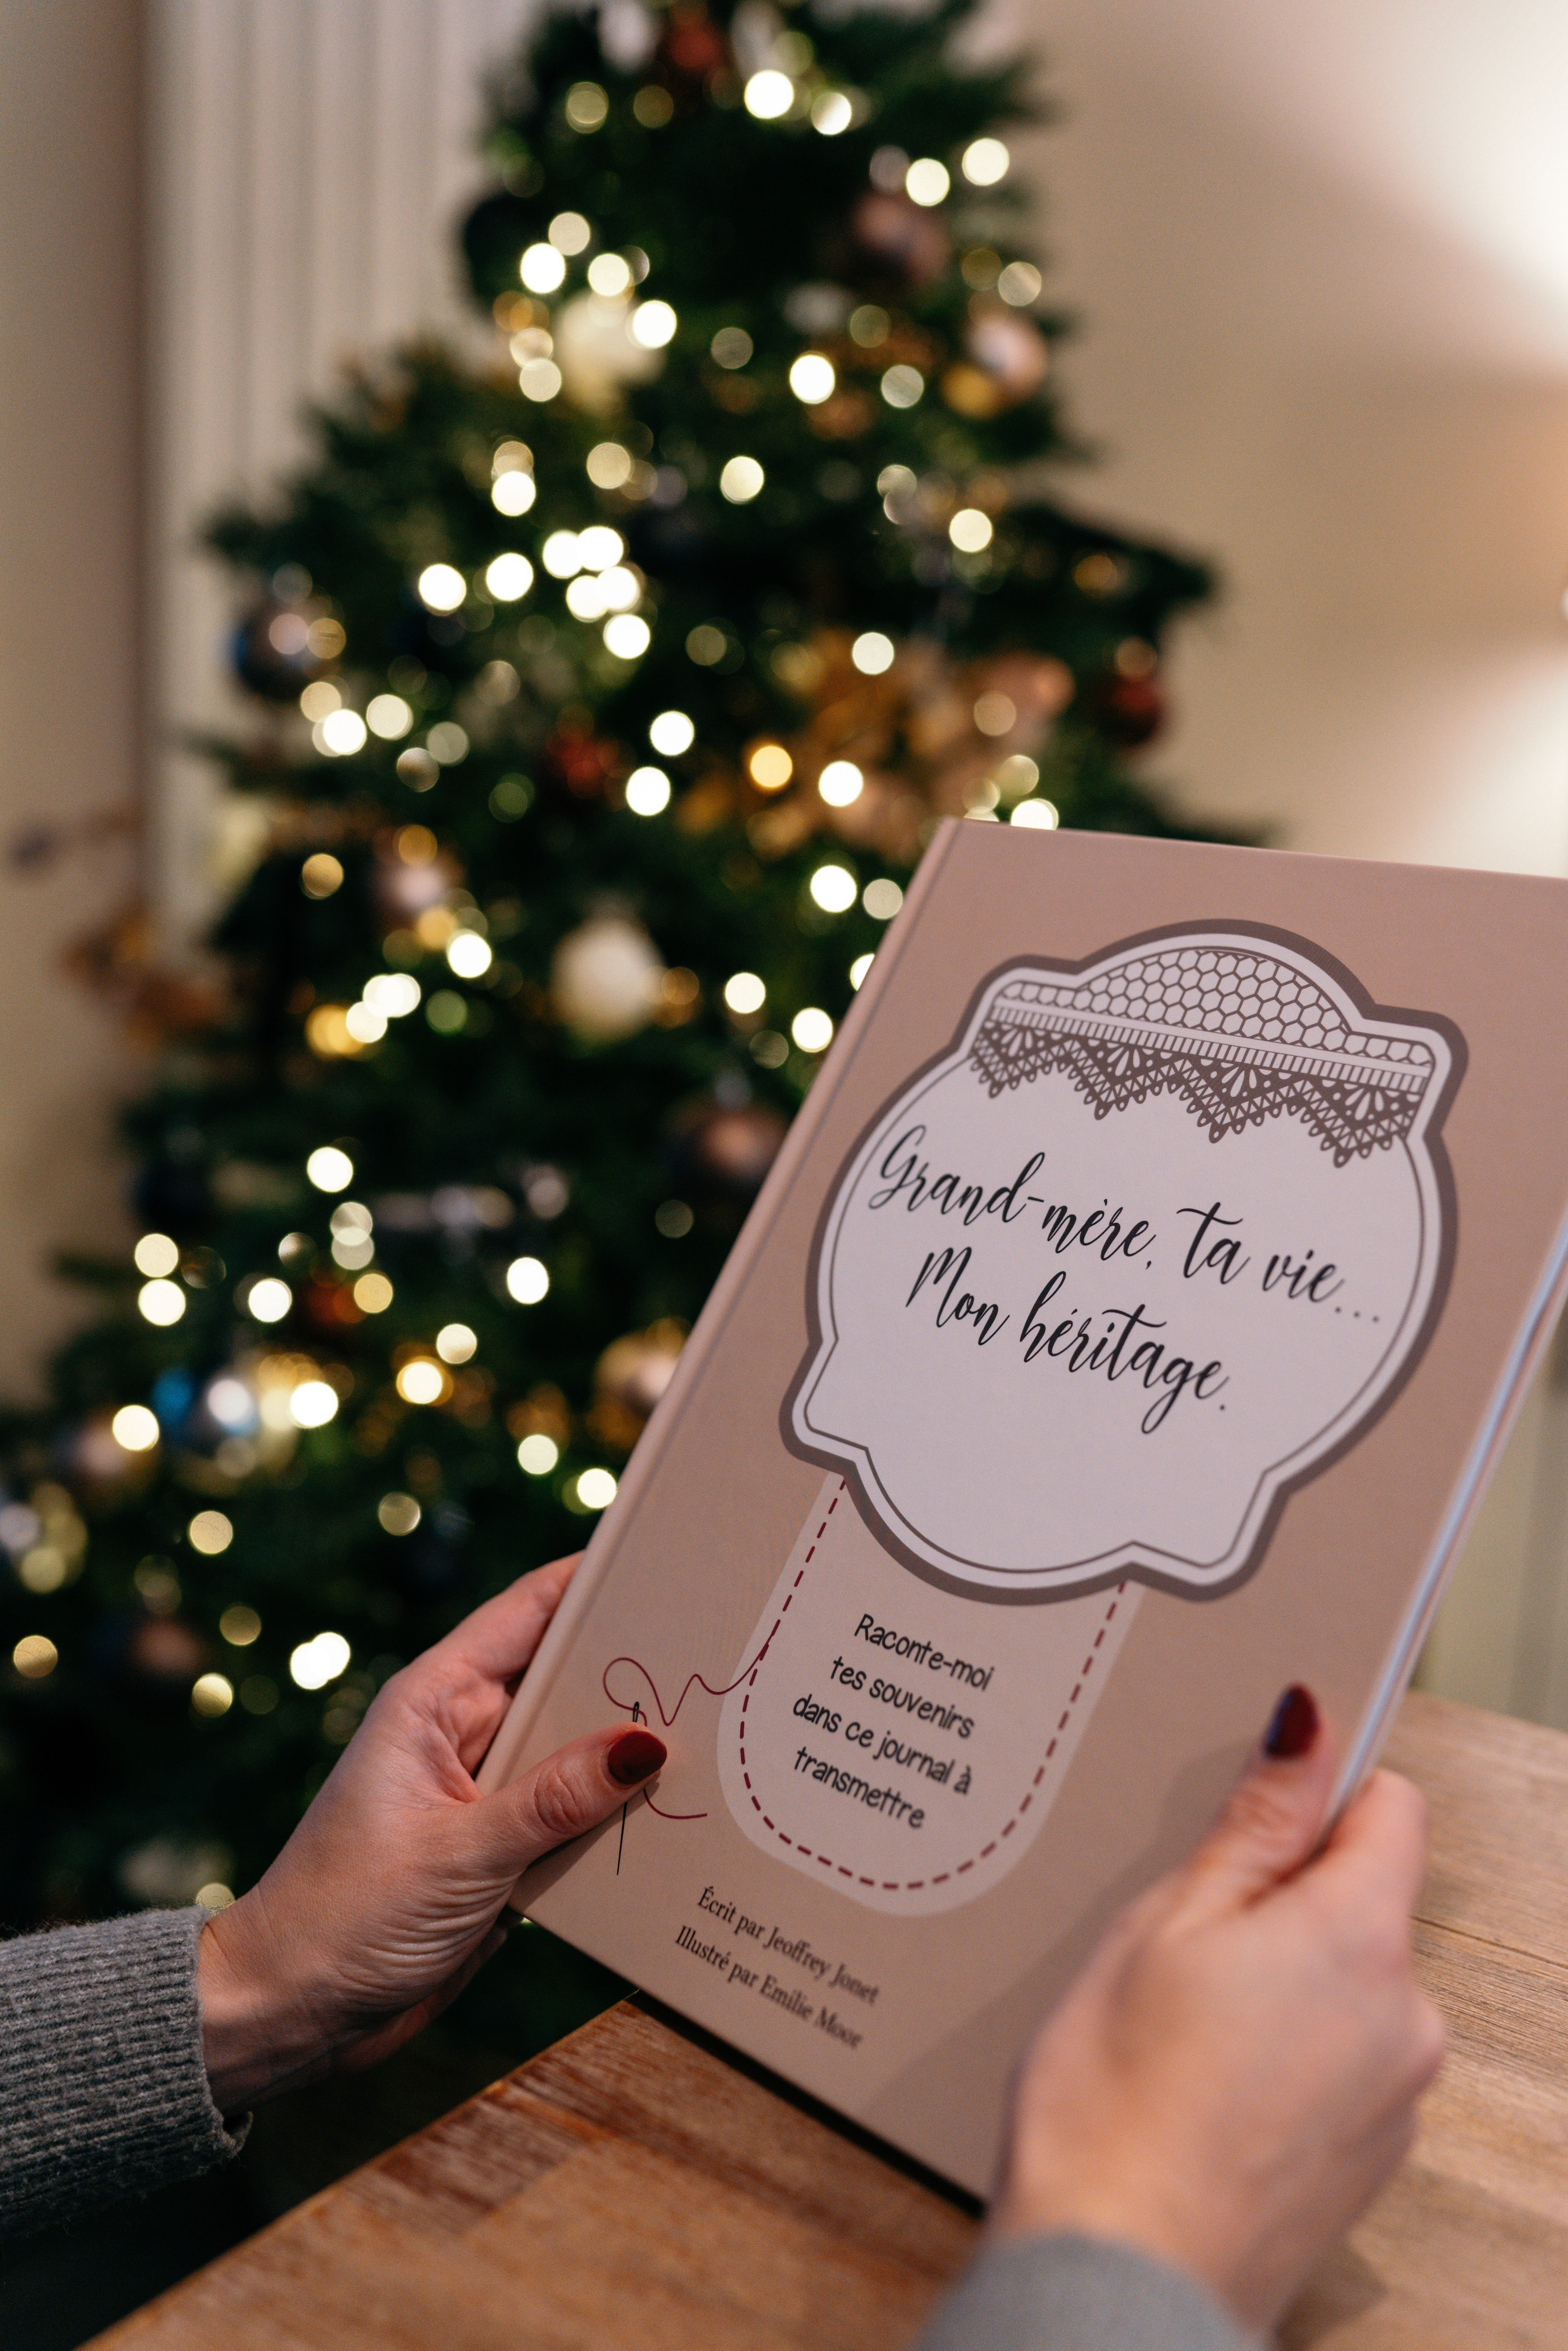 Grand-mère, ta vie...
Mon héritage.
Raconte-moi
tes souvenirs
dans ce journal à
transmettre
Écrit par Jeoffrey Jonet
Illustré par Emilie Moor